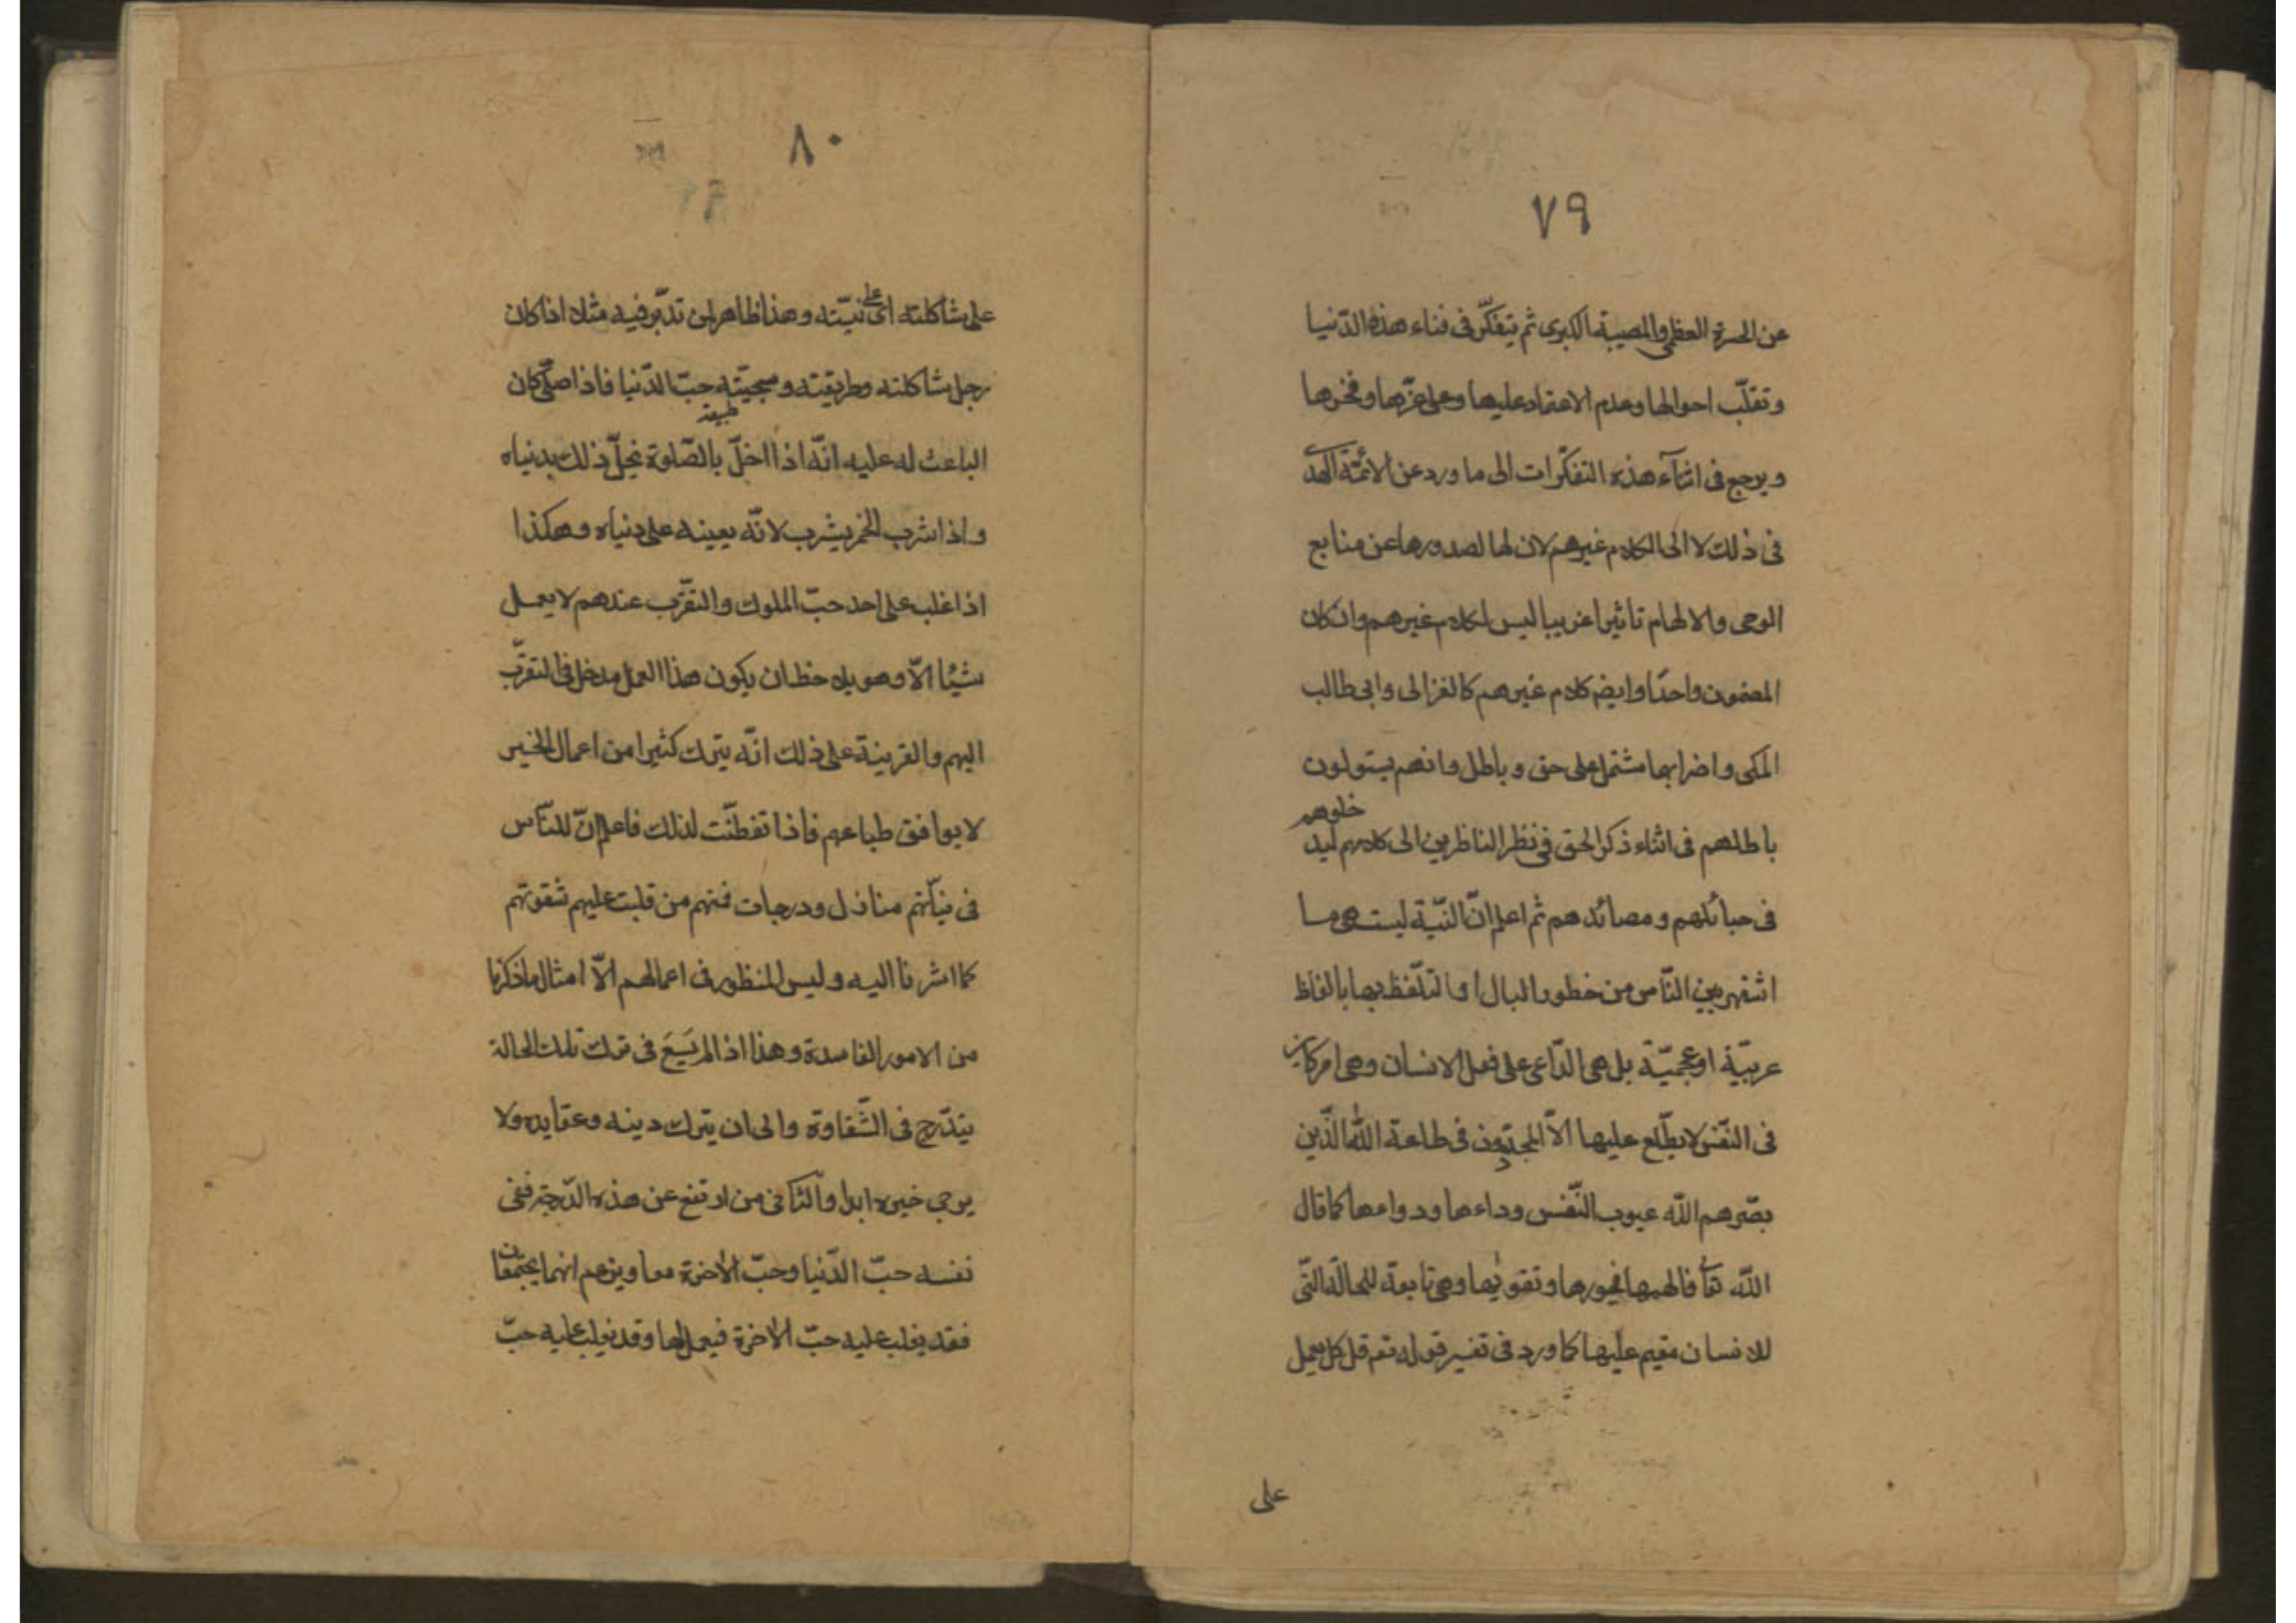 ٧٩
عن الحسرة العظمى والمصيبة الكبرى ثم يتفكّر فى فناء هذه الدّنيا
وتقلّب احوالها وعدم الاعتماد عليها وعلى عزّها وفخرها
ويرجع فى اثنآء هذه التفكّرات الى ما ورد عن الائمّة الهدى
فى ذلك لا الى الكلام غيرهم لان لها لصدورها عن منابع
الوحى والالهام تاثيرا غريبا ليس لكلام غيرهم وان كان
المضمون واحدًا وايضا كلام غيرهم كالغزالى وابى طالب
المكى واضرابهما مشتمل على حق وباطل وانهم يسولون
باطلهم فى اثناء ذكر الحق فى نظر الناظرين الى كلامهم ليد
خلوهم
فى حبائلهم ومصائدهم ثم اعلم انّ النيّة ليست هى ما
اشتهر بين النّاس من خطور البال او التلّفظ بها بالفاظ
عربيّة او عجميّة بل هى الدّاعى على فعل الانسان وهى امر كاين
فى النّفس لا يطّلع عليها الاّ المجتهدون فى طاعة الله الّذين
بصّرهم الله عيوب النّفس وداءها ودواءها كما قال
الله تعا فالهمها فجورها وتقويٰها وهى تابعة للحالة الّتى
للانسان مقيم عليها كما ورد فى تفسير قوله تعم قل كل يعمل
على
٨٠
على شاكلته اى على نيّته وهذا ظاهر لمن تدّبر فيه مثلا اذا كان
رجل شاكلته وطريقته وسجيّته حبّ الدّنيا فاذا صلّى كان
طبيعة
الباعث له عليه انّه اذا اخلّ بالصّلوة يخلّ ذلك بدنياه
واذا شرب الخمر يشرب لانّه يعينه على دنياه وهكذا
اذا غلب على احد حبّ الملوك والتقرّب عندهم لا يعمل
شيئا الاّ وهو يلاحظ ان يكون هذا العمل مدخل فى التقرّب
اليهم والقرينة على ذلك انّه يترك كثيرا من اعمال الخير
لا يوافق طباعهم فاذا تفطّنت لذلك فاعلم انّ للنّاس
فى نيّاتهم منازل ودرجات فمنهم من غلبت عليهم شقوتهم
كما اشرنا اليه وليس المنظور فى اعمالهم الاّ امثال ما ذكرنا
من الامور الفاسدة وهذا اذا لم يَسَعَ فى ترك تلك الحالة
يتدّرج فى الشّقاوة والى ان يترك دينه وعقايده ولا
يرجى خيره ابدا والثّانى من ارتفع عن هذه الدّرجة ففى
نفسه حبّ الدّنيا وحبّ الاخرة معا ويزعم انهما يجتمعان
فقد يغلب عليه حبّ الاخرة فيعمل لها وقد يغلب عليه حبّ